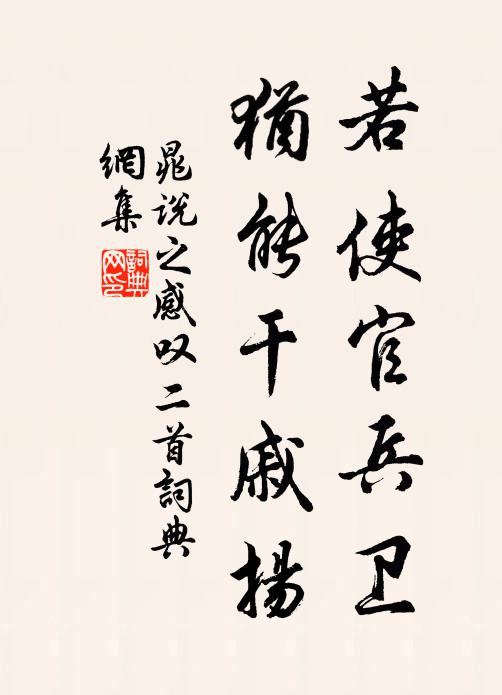 若使官兵卫
猶能干戚揚
晁说之感叹二首詞典
網集
詞典
网印